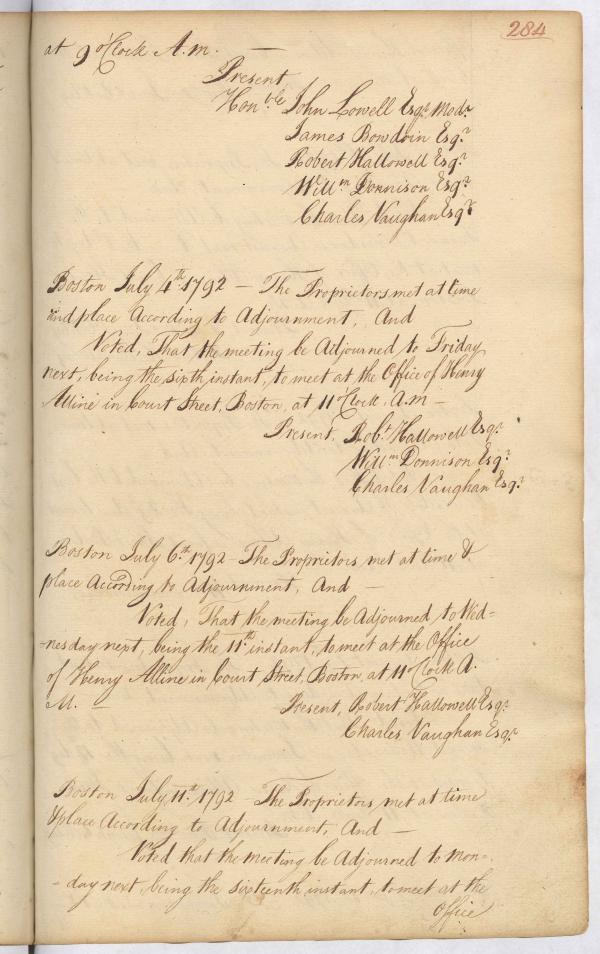 284
at 9 o'Clock A.m. —
Present
Hon.ble John Lowell Esqr. Modr.
James Bowdoin Esqr.
Robert Hallowell Esqr.
Willm. Donnison Esqr.
Charles Vaughan Esqr.
Boston July 4th. 1792 — The Proprietors met at time
and place According to Adjournment, And
Voted, That the meeting be Adjourned to Friday
next, being the sixth, instant, to meet at the Office of Henry
Alline in Court Street, Boston, at 11 o'Clock, A.M —
Present, Robt. Hallowell Esqr.
Willm. Donnison Esqr.
Charles Vaughan Esqr.
Boston July 6th. 1792 — The Proprietors met at time &
place According to Adjournment, And —
Voted, That the meeting be Adjourned, to Wed=
=nesday next, being the 11th. instant, to meet at the Office
of Henry Alline in Court Street, Boston, at 11 o'Clock A.
M. —
Present, Robert Hallowell Esqr.
Charles Vaughan Esqr.
Boston July 11th. 1792 — The Proprietors met at time
& place According to Adjournment, And —
Voted that the meeting be Adjourned to mon=
=day next, being the sixteenth instant, to meet at the
Office